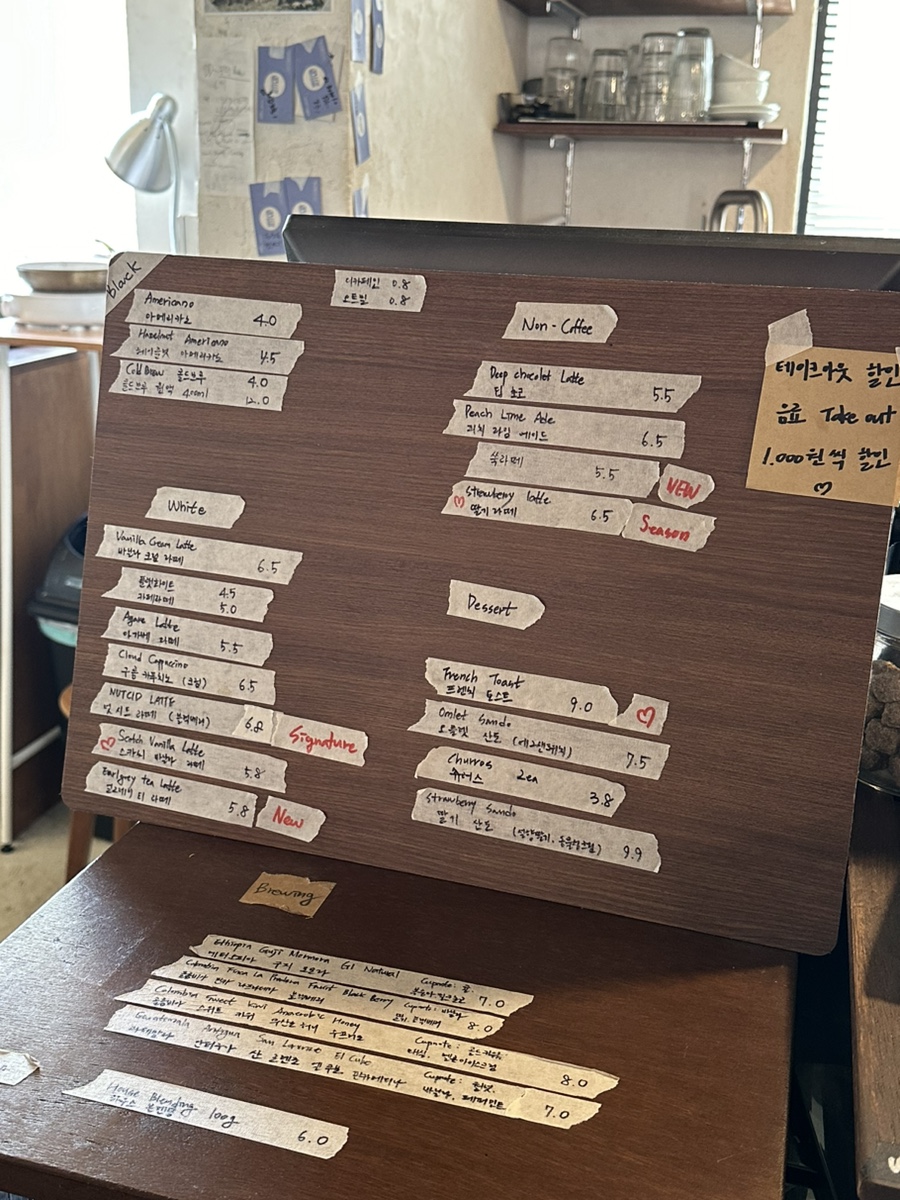 Black
Americano
아메리카노 4.0
Hazelnut Americano
헤이즐넛 아메리카노 4.5
Cold Brew 콜드브루 4.0
콜드브루 원액 400ml 12.0
디카페인 0.8
오트밀 0.8
White
Vanilla Cream Latte
바닐라 크림 라떼 6.5
플랫화이트 4.5
카페라떼 5.0
Agave Latte
아가베 라떼 5.5
Cloud Cappuccino
구름 카푸치노 (크림) 6.5
NUTCID LATTE
넛시드 라떼
Signature
Scotch Vanilla Latte
스카치 바닐라 라떼 5.8
Earlgrey tea Latte
얼그레이 티 라떼 5.8
New
Non-Coffee
Deep chocolet Latte
딥 초코 5.5
Peach Lime Ade
피치 라임 에이드 6.5
쑥라떼 5.5
NEW
Strawberry latte
딸기 라떼 6.5
Season
Dessert
French Toast
프렌치 토스트 9.0
Omlet Sando
오믈렛 산도 (에그샌드위치) 7.5
Churros 2ea
츄러스 3.8
Strawberry Sando
딸기 산도 9.9
테이크아웃 할인
음료 Take out
1.000원씩 할인
Brewing
Ethiopia Guji Mormora G1 Natural Cupnote:
에티오피아 구지 모모라 7.0
Colombia Finca La Pradera Fruit Black Berry Cupnote:
콜롬비아 8.0
Colombia Sweet Kiwi Anaerobic Honey Cupnote:
콜롬비아 스위트 키위 무산소 허니 8.0
Guatemala Antigua San Lorenzo El Cubo Cupnote:
과테말라 안티구아 산 로렌조 엘 쿠보 바닐라, 페퍼민트 7.0
House Blending 100g
하우스 블렌딩 6.0